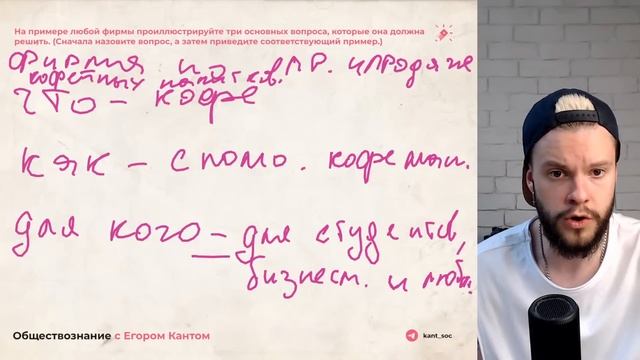 На примере любой фирмы проиллюстрируйте три основных вопроса, которые она должна
решить. (Сначала назовите вопрос, а затем приведите соответствующий пример.)
фирмя по пр. и продаже
кофейных напитков.
что - кофе
как - с помо. кофемаш.
для кого - для студентов,
бизнесм. и люб.
Обществознание с Егором Кантом
kant_soc